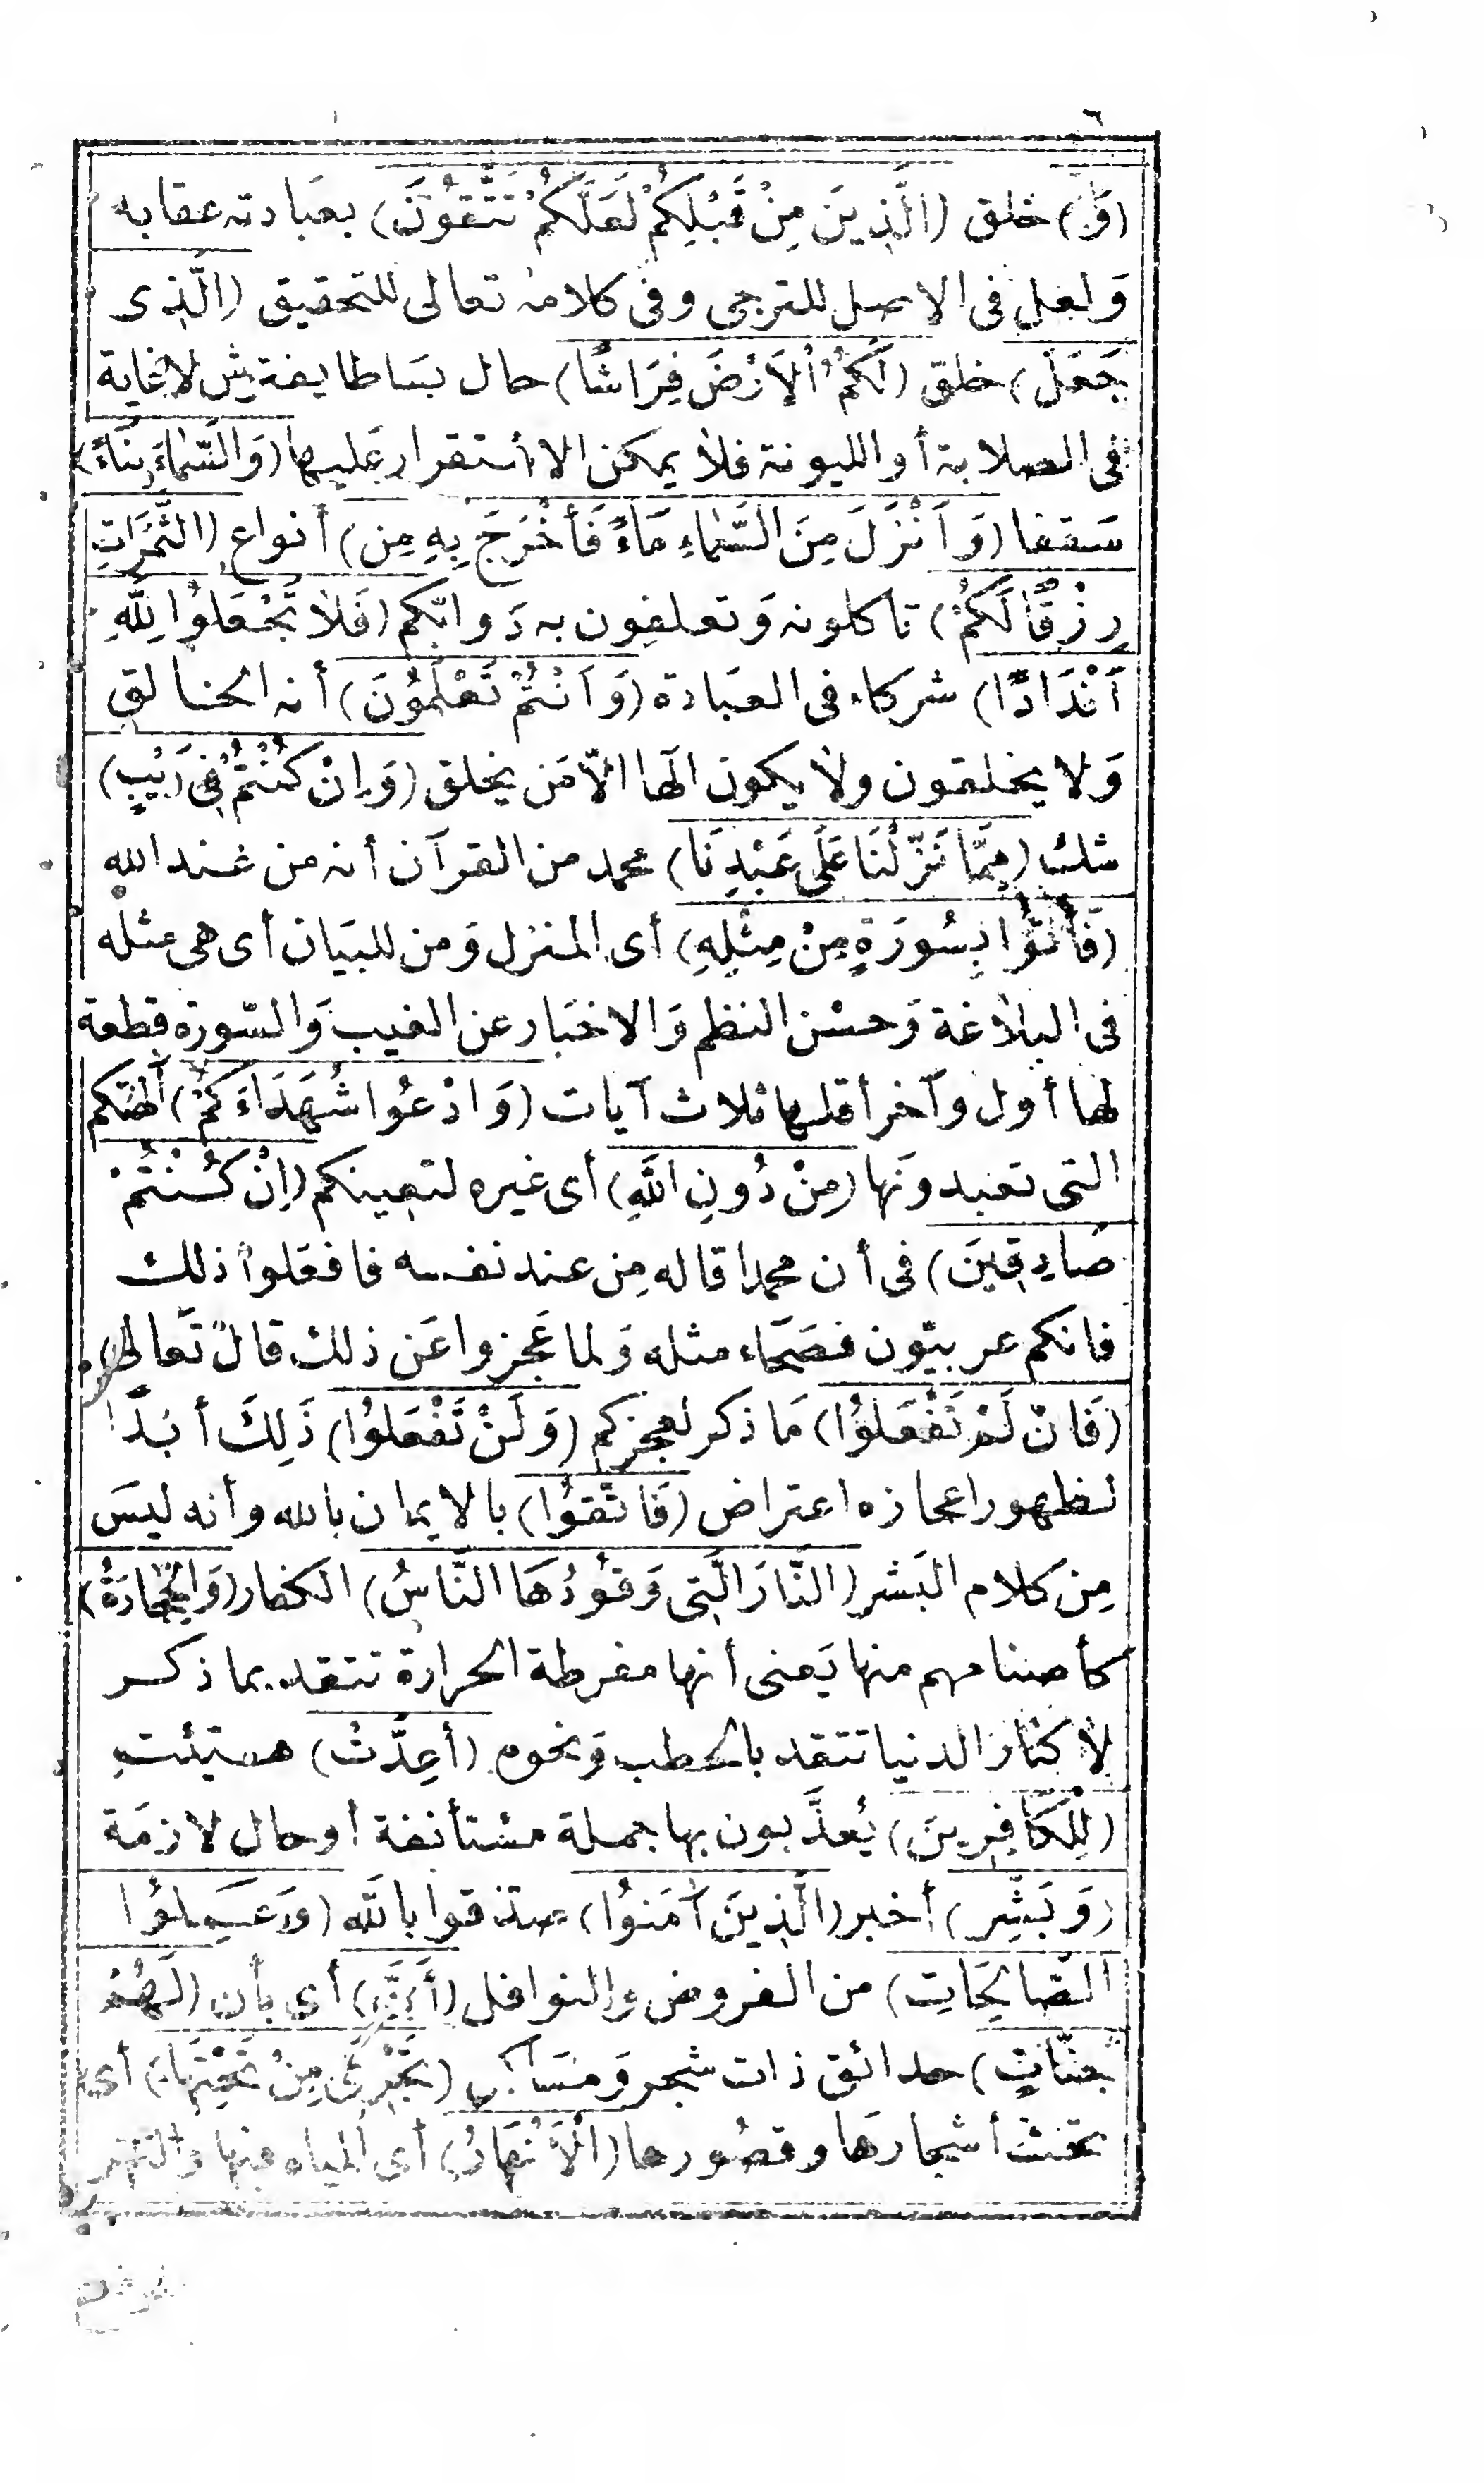 ٦
(وَ) خلق (الَّذِينَ مِنْ قَبْلِكُمْ لَعَلَّكُمْ تَتَّقُوْنَ) بعبَادته عقابه
وَلعل فى الاصل للترجى وفى كلامه تعالى للتحقيق (الَّذِى
جَعَلَ) خلق (لَكُمُ اْلاَرْضَ فِرَاشًا) حال بسَاطا يفترش لاغاية
فى الصلابة أو الليونة فلا يمكن الاستقرار عَليها (وَالسَّمَاءَ بِنَاءً)
سَقفا (وَاَنْزَلَ مِنَ السَّمَاءِ مَاءً فَأَخْرَجَ بِهِ مِن) أنواع (الثَّمَرَاتِ
رِزْقًا لَكُمْ) تأكلونه وَتعلفون به دَوابّكم (فَلاَ تَجْعَلُوْا لِلّٰهِ
اَنْدَادًا) شركاء فى العبَادة (وَاَنْتُمْ تَعْلَمُونَ) أنه الخالق
وَلا يخلقون ولا يكون الٓها الاّ مَن يخلق (وَاِنْ كُنْتُمْ فِى رَيْبٍ)
شك (مِمَّا نَزَّلْنَا عَلَى عَبْدِنَا) محمد من القرآن أنه من عند الله
(فَأْتُوْا بِسُورَةٍ مِنْ مِثْلِهِ) أى المنزل وَمن للبيَان أى هى مثله
فى البلاغة وَحسْن النظم وَالاخبَار عن الغيب وَالسّورة قطعة
لها أول وآخر أقلها ثلاث آيات (وَادْعُوا شُهَدَاءَكُمْ) آلهتكم
التى تعبدونَها (مِنْ دُونِ اللّٰهِ) أى غيره لتعينكم (اِنْ كُنْتُمْ
صَادِقِينَ) فى أن محمدا قاله مِن عند نفسه فافعَلوا ذلك
فانكم عربيّون فصَحَاء مثله وَلما عَجزوا عَن ذلك قال تَعالى
(فَاِنْ لَمْ تَفْعَلُوْا) مَا ذكر لعجزكم (وَلَنْ تَفْعَلُوْا) ذَلِكَ أبَدًا
لظهور اعجازه اعتراض (فَاتَّقُوْا) بالايمان بالله وأنه ليسَ
مِن كلام البَشر (النَّارَ الَّتِى وَقُوْدُهَا النَّاسُ) الكفار (وَالْحِجَارَةُ)
كأصنامهم منها يَعنى أنها مفرطة الحرارة تتقد بما ذكر
لا كنار الدنيا تتقد بالحطب وَنحوه (أُعِدَّتْ) هيئت
(لِلْكَافِرِينَ) يُعذَّبون بها جملة مستأنفة أو حال لازمَة
(وَبَشِّرِ) أخبر (الَّذِينَ آمَنوُا) صدّقوا باللّٰه (وَعَمِلوُا
الصَّالِحَاتِ) من الفروض والنوافل (أَنَّ) أى بأن (لَهُمْ
جَنَّاتٍ) حدائق ذات شجر وَمسَاكن (تَجْرِى مِنْ تَحْتِهَا) أى
تحت أشجارهَا وقصُورها (اْلاَنْهَارُ) أى المياه فيها وَالنهر